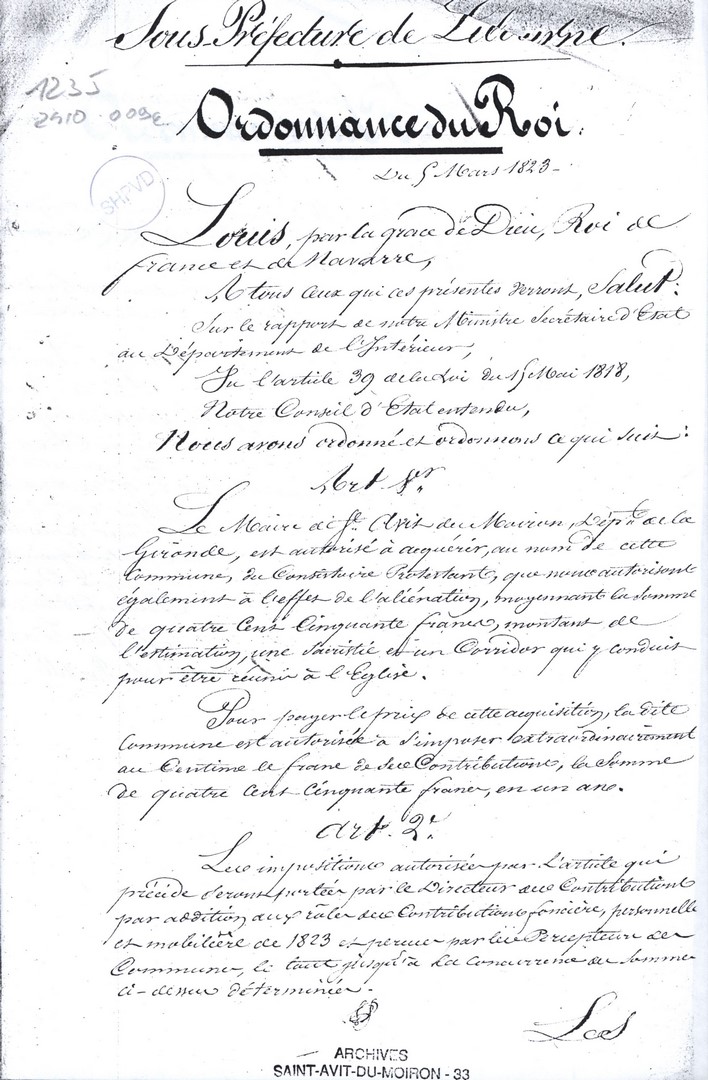 Sous-Préfecture de Libourne.
1235
2910 009e
Ordonnance du Roi.
Du 5 Mars 1823-
SHPVD
Louis, par la grace de Dieu, Roi de
france et de Navarre,
A tous ceux qui ces présentes verront, Salut:
Sur le rapport de notre Ministre Secrétaire d'Etat
au Département de l'Intérieur,
Vu l'article 39 de la Loi du 15 Mai 1818,
Notre Conseil d'Etat entendu,
Nous avons ordonné et ordonnons ce qui suit:
Art. 1er.
Le Maire de St. Avit du Moiron, Dépt. de la
Gironde, est autorisé à acquérir, au nom de cette
Commune, du Consistoire Protestant, que nous autorisons
également à l'effet de l'aliénation, moyennant la somme
de quatre Cent Cinquante francs, montant de
l'estimation, une Sacristie et un Corridor qui y conduit
pour être réunis à l'Eglise.
Pour payer le prix de cette acquisition, la dite
Commune est autorisée à s'imposer extraordinairement
au Centime le franc de ses Contributions, la Somme
de quatre Cent Cinquante francs, en un an.
Art. 2e.
Les impositions autorisées par l'article qui
précède seront portées par le Directeur des Contributions
par addition aux rôles des Contributions foncière, personnelle
et mobilière de 1823 et perçues par les Percepteurs des
Communes, le tout jusqu'à la concurrence des Sommes
ci-dessus déterminées.
Les
ARCHIVES
SAINT-AVIT-DU-MOIRON - 33